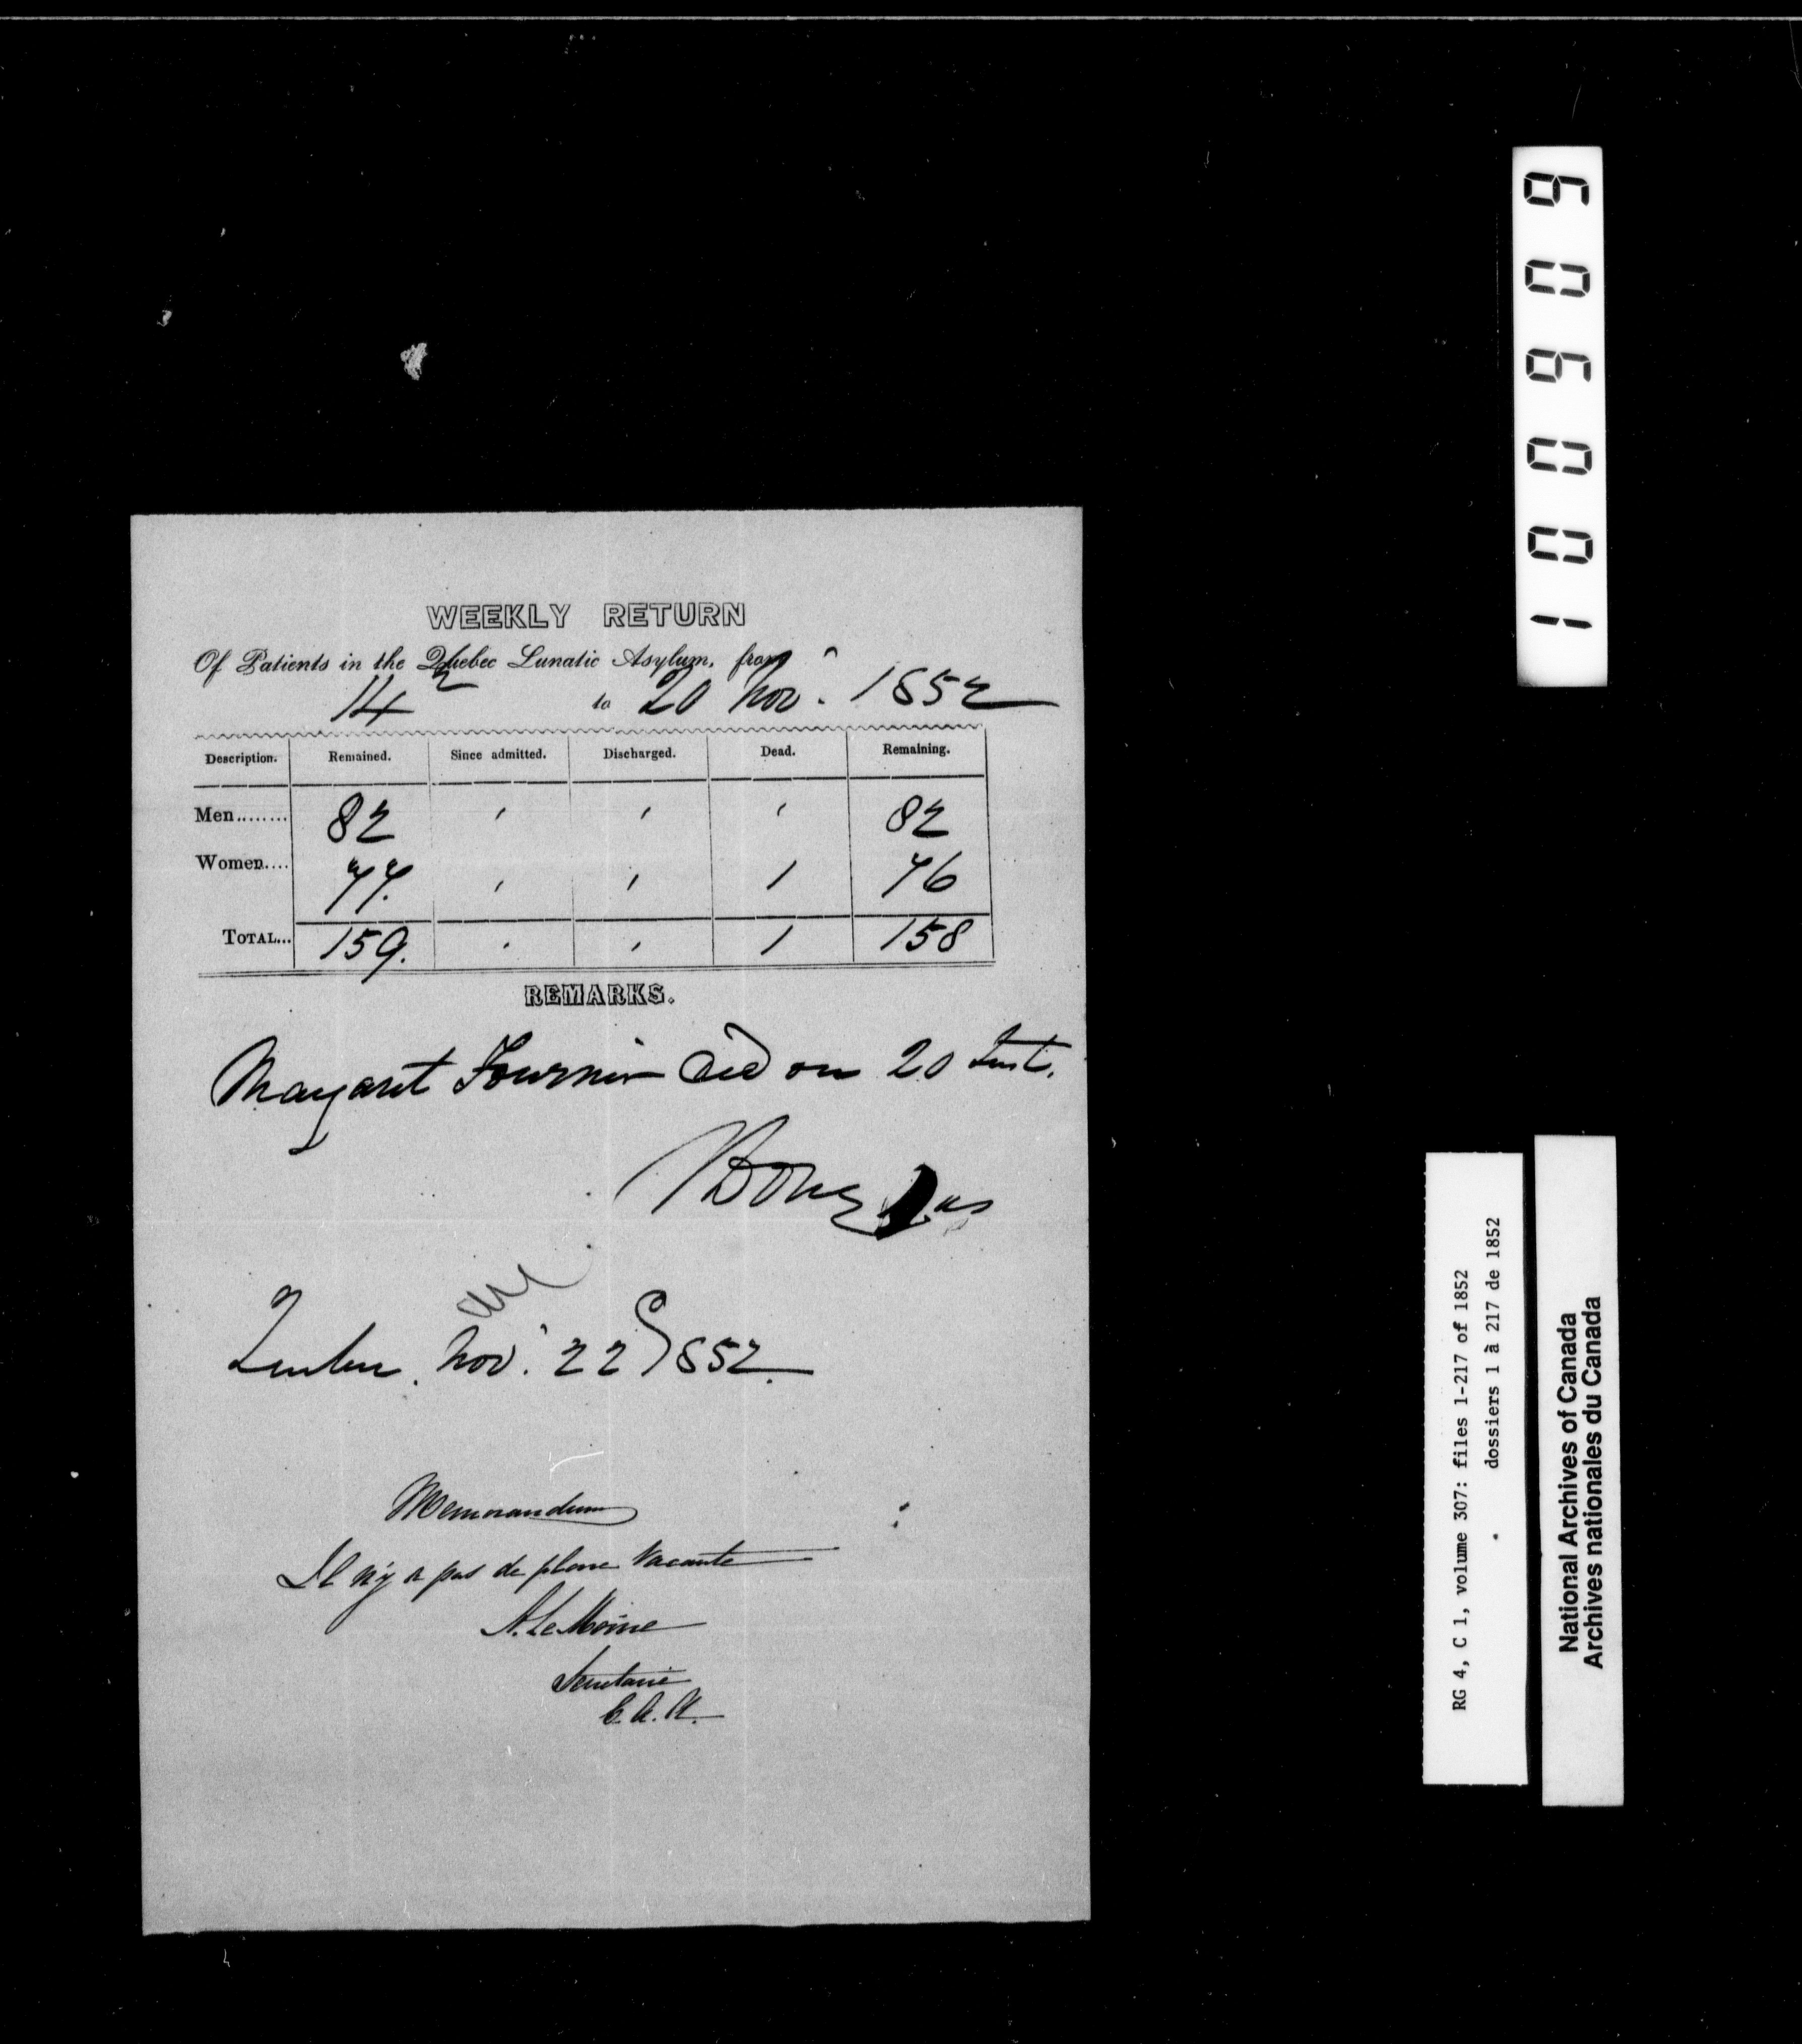 WEEKLY RETURN
Of Patients in the Quebec Lunatic Asylum, from
14 to 20 Nov. 1852
Description. Remained. Since admitted. Discharged. Dead. Remaining.
Men........ 82 ' ' ' 82
Women.... 77. ' ' 1 76
TOTAL... 159. ' ' 1 158
REMARKS.
Margaret Fournier died on 20 Inst.
Douglas
Quebec. Nov. 22 1852.
Memorandum
Il n'y a pas de place vacante
A. Le Moine
Secretaire
100609
RG 4, C 1, volume 307: files 1-217 of 1852
dossiers 1 à 217 de 1852
National Archives of Canada
Archives nationales du Canada